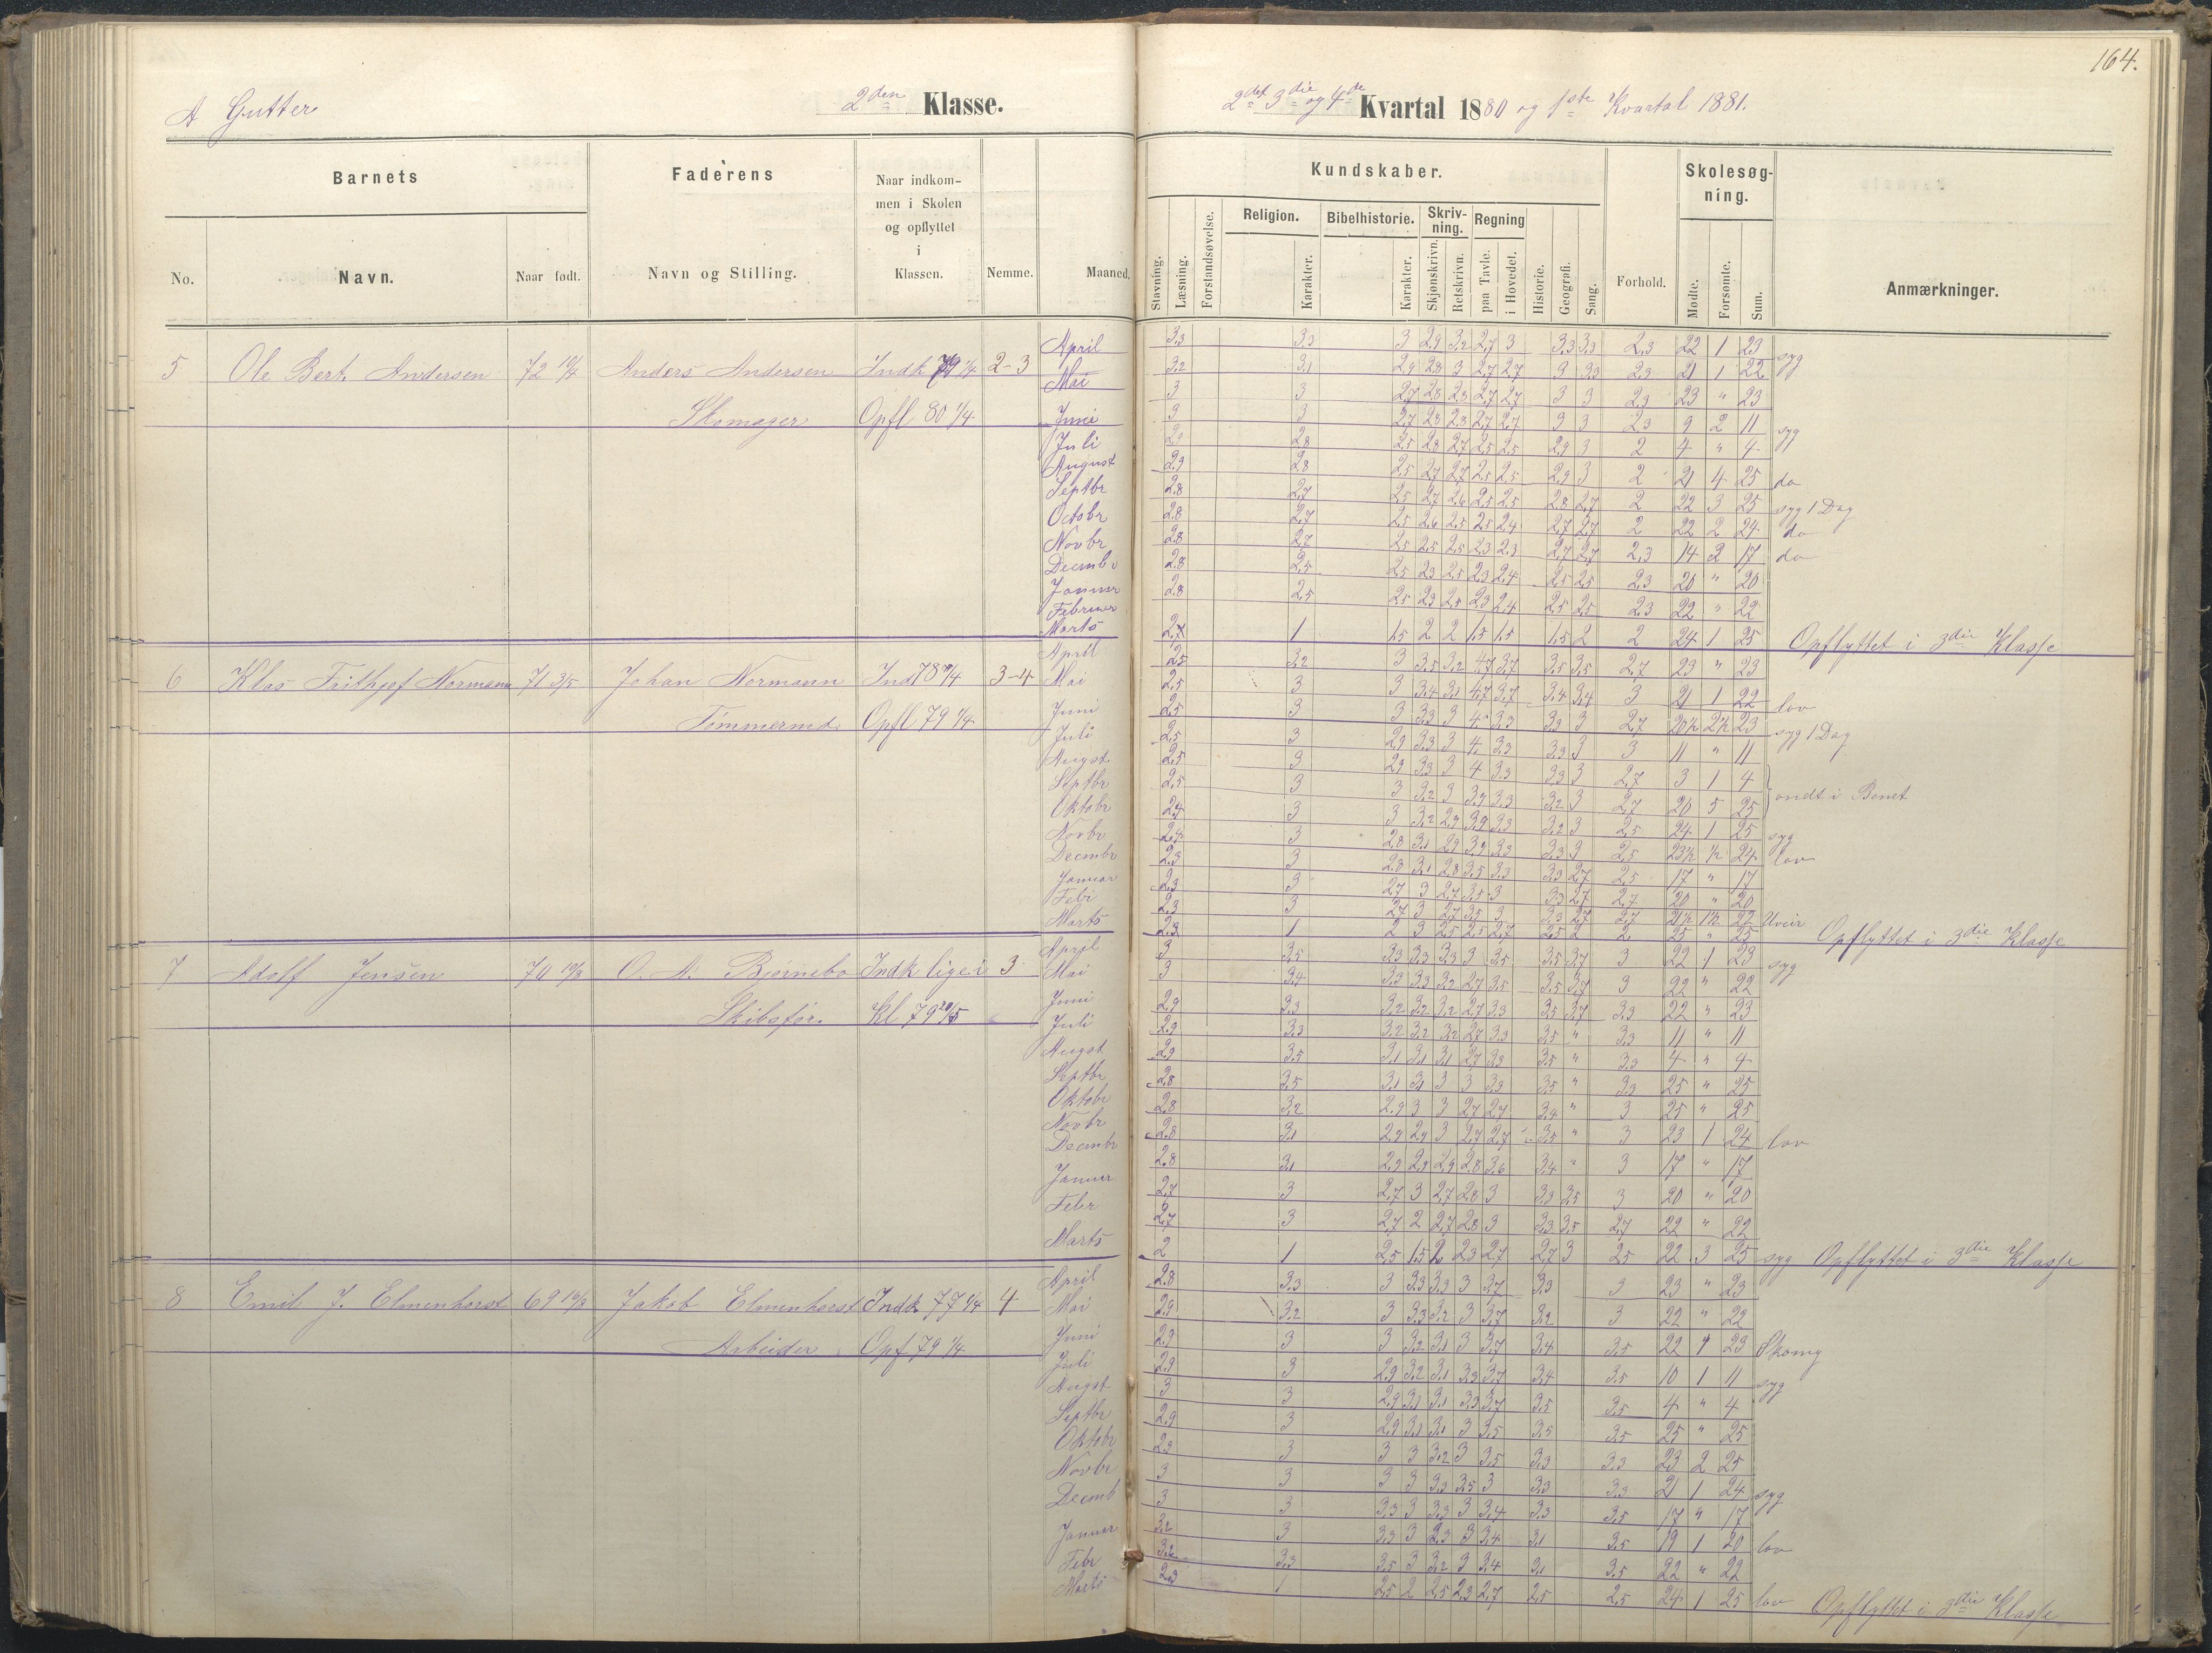 164.
A Gutter 2den Klasse. 2det 3die og 4de Kvartal 1880 og 1ste Kvartal 1881.
Barnets Faderens Naar indkommen i Skolen og opflyttet i Klassen. Nemme. Maaned. Kundskaber. Forhold. Skolesøgning. Anmærkninger.
No. Navn. Naar født. Navn og Stilling.
Stavning. Læsning. Forstandsøvelse. Religion. Karakter. Bibelhistorie. Karakter. Skrivning. Skjønskrivn. Retskrivn. Regning paa Tavle. i Hovedet. Historie. Geografi. Sang. Mødte. Forsømte. Sum.
5 Ole Bert. Andersen 72 Anders Andersen Indk 79 1/4 2-3
Skomager Opfl 80 1/4
April 3,3 3,3 3 2,9 3,2 2,7 3 3,3 3,3 2,3 22 1 23 syg
Mai 3,2 3,1 2,9 2,8 3 2,7 2,7 3 3,3 2,3 21 1 22
Juni 3 3 2,7 2,8 2,3 2,7 2,7 3 3 2,3 23 " 23
Juli 3 3 2,7 2,8 2,8 2,7 2,7 3 3 2,3 9 2 11 syg
August 2,9 2,8 2,5 2,8 2,7 2,5 2,5 2,9 3 2 4 " 4
Septbr 2,9 2,8 2,5 2,7 2,7 2,5 2,5 2,9 3 2 21 4 25 do
Octobr 2,8 2,7 2,5 2,7 2,6 2,5 2,5 2,8 2,7 2 22 3 25 syg 1 Dag
Novbr 2,8 2,7 2,5 2,6 2,5 2,5 2,4 2,7 2,7 2 22 2 24 do
Decembr 2,8 2,7 2,5 2,5 2,5 2,3 2,3 2,7 2,7 2,3 14 2 17 do
Januar 2,8 2,5 2,5 2,3 2,5 2,3 2,4 2,5 2,5 2,3 20 " 20
Februar 2,8 2,5 2,5 2,3 2,5 2,3 2,4 2,5 2,5 2,3 22 " 22
Marts 2,7 1 1,5 2 2 1,5 1,5 1,5 2 2 24 1 25 Opflyttet i 3die Klasse
6 Klas Frithjof Normann 71 3/5 Johan Normann Ind 78 3-4
Tømmermd. Opfl 79 1/4
April 2,5 3,2 3 3,5 3,2 4,7 3,7 3,5 3,5 2,7 23 " 23
Mai 2,5 3 3 3,4 3,1 4,7 3,7 3,4 3,4 3 21 1 22 lov
Juni 2,5 3 3 3,3 3 4 3,3 3,3 3 2,7 20½ 2½ 23 syg 1 Dag
Juli 2,5 3 2,9 3,3 3 4 3,3 3,3 3 3 11 " 11
Augst. 2,5 3 2,9 3,3 3 4 3,3 3,3 3 2,7 3 1 4
Septbr 2,5 3 3 3,2 3 3,9 3,3 3,2 3 2,7 20 5 25 ondt i Benet
Oktobr 2,4 3 3 3,2 2,9 3,9 3,3 3,2 3 2,5 24 1 25 syg
Novbr 2,4 3 2,8 3,1 2,9 3,9 3,3 3,3 3 2,5 23½ ½ 24 lov
Decmbr 2,3 3 2,8 3,1 2,8 3,5 3,3 3,3 2,7 2,5 17 " 17
Januar 2,3 3 2,7 3 2,7 3,5 3 3,3 2,7 2,7 20 " 20
Feb 2,3 3 2,7 3 2,7 3,5 3 3,3 2,7 2,7 21½ 1½ 22 Uveir
Marts 2,3 1 2 3 2,5 2,5 2,7 2,5 2 2 25 " 25 Opflyttet i 3die Klasse
7 Adolf Jensen 70 O. A. Bjørnebo Indk lige i 3
Skibsfør. Kl 79
April 3 3,5 3,3 3,3 3,3 3 3,5 3,5 3,7 3 22 1 23 syg
Mai 3 3,4 3,3 3,3 3,2 2,7 3,5 3,5 3,7 3 22 " 22
Juni 2,9 3,3 3,2 3,2 3,2 2,7 3,3 3,5 3,7 3,3 22 " 23
Juli 2,9 3,3 3,2 3,2 3,2 2,7 3,3 3,5 " 3,3 11 " 11
Augst 2,9 3,5 3,1 3,1 3,1 2,7 3,3 3,5 " 3,3 4 " 4
Septbr 2,8 3,5 3,1 3,1 3 3 3,3 3,5 " 3,3 25 " 25
Oktobr 2,8 3,2 2,9 3 3 2,7 2,7 3,4 " 3 25 " 25
Novbr 2,8 3,1 2,9 2,9 3 2,7 2,7 3,5 " 3 23 1 24 lov
Decmbr 2,8 3,1 2,9 2,9 2,9 2,8 3,6 3,4 " 3 17 " 17
Januar 2,7 3 2,7 3 2,7 2,8 3 3,3 3,5 3 20 " 20
Febr 2,7 3 2,7 2 2,7 2,8 3 3,3 3,5 2,7 22 " 22
Marts 2 1 2,5 1,5 2 2,3 2,7 2,7 3 2,5 22 3 25 syg Opflyttet i 3die Klasse
8 Emil J. Elmenhorst 69 Jakob Elmenhorst Indk 77 1/4 4
Arbeider Opf 79 1/4
April 2,8 3,3 3 3,3 3,3 3 3,7 3,3 3 23 " 23
Mai 2,9 3,2 3 3,3 3,2 3 3,7 3,2 3 22 " 22
Juni 2,9 3 3 3,2 3,1 3 3,7 3,4 3,5 22 1 23
Juli 2,9 3 2,9 3,2 3,1 3,3 3,7 3,4 3,5 10 1 11 syg
Augst 3 3 2,9 3,1 3,1 3,3 3,7 3,5 3,5 4 " 4
Septbr 2,9 3 2,9 3,1 3,1 3 3,5 3,5 3,5 25 " 25
Oktobr 2,9 3 3 3 3,2 3 3,5 3,3 3,3 23 2 25
Novbr 3 3 3 3 3,3 3,5 3 3,3 3,3 21 1 24 syg
Decmb 3 3 3,3 3 3,3 3 3,4 3,3 3,5 17 " 17
Januar 3,2 3 3,3 3 2,3 3 3,4 3,1 3,5 19 1 20 lov
Febr 3,2 3,3 3,5 3 3,2 3 3,4 3,1 3,5 22 " 22
Marts 2,3 1 2,5 2 2,5 2,3 2,7 2,5 2,5 24 1 25 lov Opflyttet i 3die Klasse